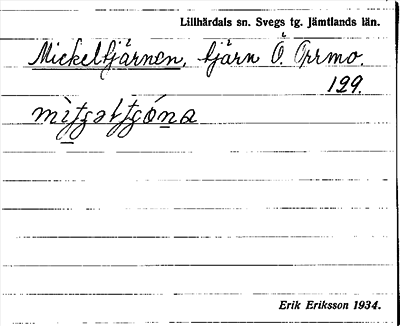 Lillhärdals sn. Svegs tg. Jämtlands län.
Mickeltjärnen, tjärn Ö. Orrmo.
199.
Erik Eriksson 1934.